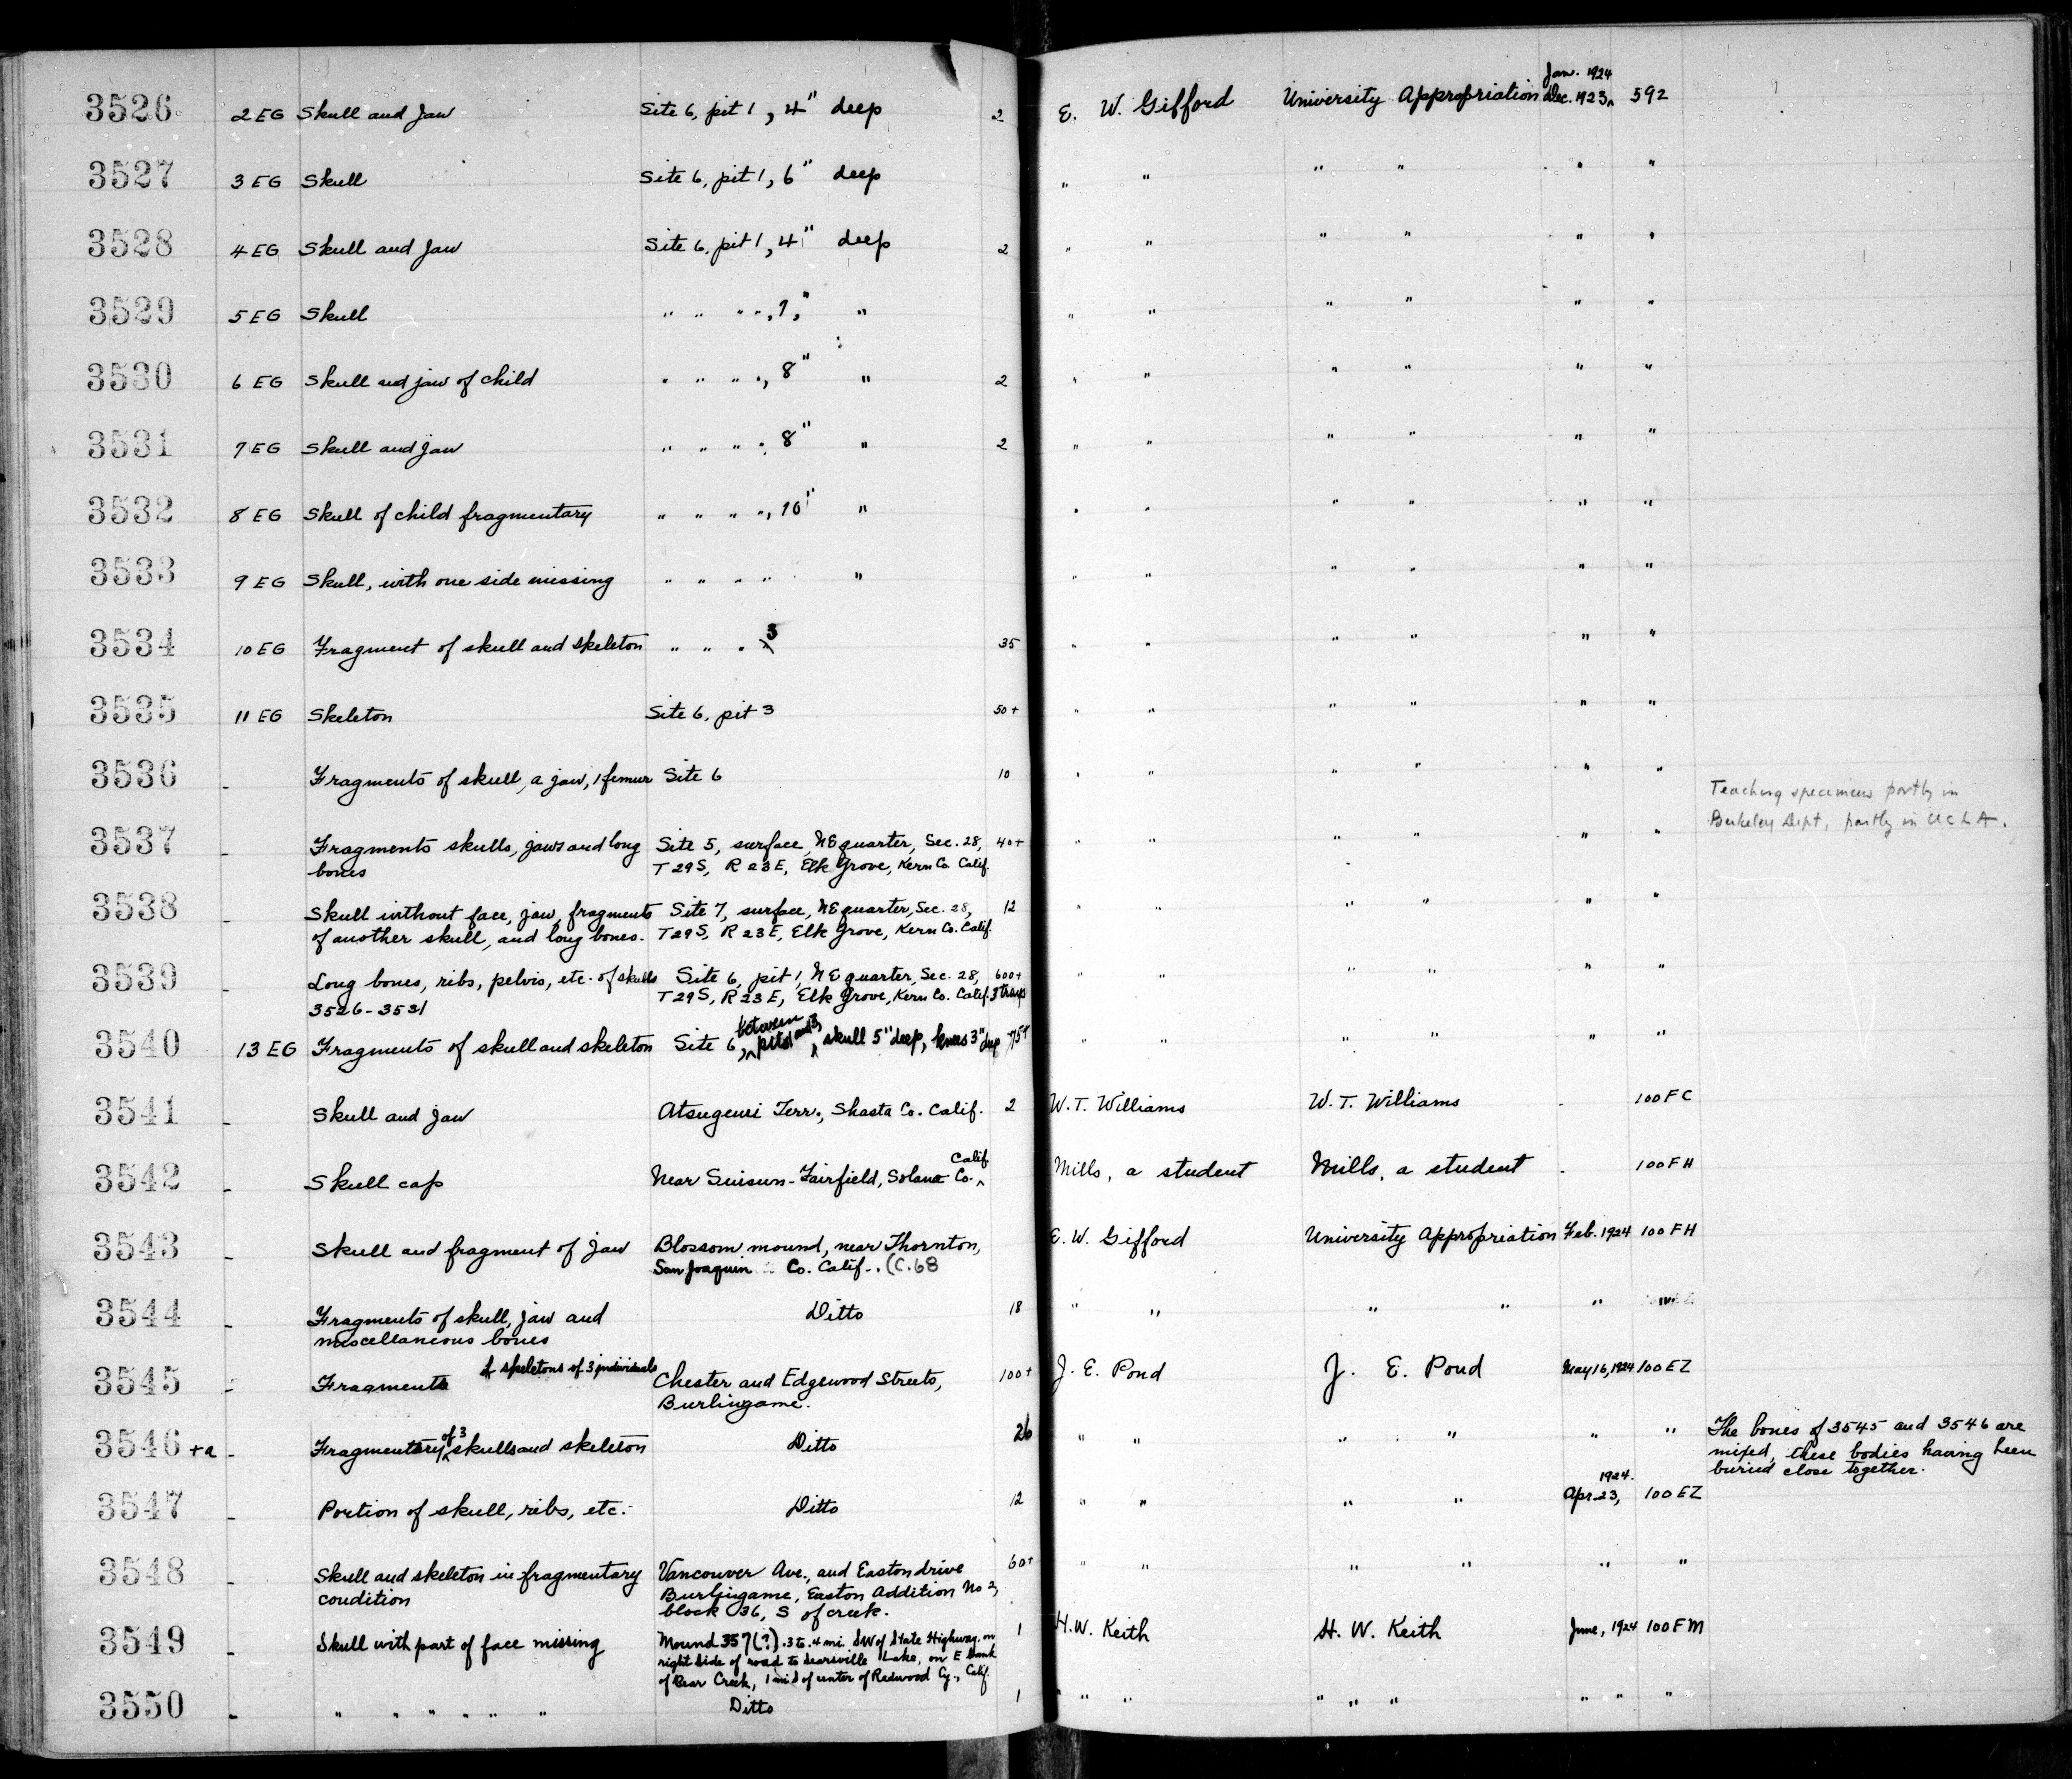 3526 2 EG Skull and Jaw Site 6, pit 1, 4" deep 2 E. W. Gifford University Appropriation Dec. 1923, Jan. 1924 592
3527 3 EG Skull Site 6, pit 1, 6" deep " " " " " "
3528 4 EG Skull and Jaw Site 6, pit 1, 4" deep 2 " " " " " "
3529 5 EG Skull " " " ", 7," " " " " " " "
3530 6 EG Skull and jaw of child " " " ", 8" " 2 " " " " " "
3531 7 EG Skull and jaw " " " " 8" " 2 " " " " " "
3532 8 EG Skull of child fragmentary " " " ", 10" " " " " " " "
3533 9 EG Skull, with one side missing " " " " " " " " " " "
3534 10 EG Fragment of skull and skeleton " " " 3 35 " " " " " "
3535 11 EG Skeleton Site 6, pit 3 50+ " " " " " "
3536 - Fragments of skull, a jaw, 1 femur Site 6 10 " " " " " "
Teaching specimens partly in
Berkeley Dept, partly in UCLA.
3537 - Fragments skulls, jaws and long Site 5, surface, NE quarter, Sec. 28, 40+ " " " " " "
bones T29S, R23E, Elk Grove, Kern Co. Calif.
3538 - Skull without face, jaw, fragments Site 7, surface, NE quarter, Sec. 28, 12 " " " " " "
of another skull, and long bones. T29S, R23E, Elk Grove, Kern Co. Calif.
3539 Long bones, ribs, pelvis, etc. of skulls Site 6, pit 1, NE quarter, Sec. 28, 600+ " " " " " "
3526-3531 T29S, R23E, Elk Grove, Kern Co. Calif. 3 trays
3540 13 EG Fragments of skull and skeleton Site 6, between pits 1 and 3, skull 5" deep, knees 3" deep 75+ " " " " " "
3541 - Skull and jaw Atsugewi Terr., Shasta Co. Calif. 2 W. T. Williams W. T. Williams - 100 FC
3542 - Skull cap Near Suisun-Fairfield, Solano Co. Calif Mills, a student Mills, a student - 100 FH
3543 - Skull and fragment of jaw Blossom mound, near Thornton, E. W. Gifford University Appropriation Feb. 1924 100 FH
San Joaquin Co. Calif. (C.68
3544 - Fragments of skull, jaw and Ditto 18 " " " " "
miscellaneous bones
3545 - Fragments of skeletons of 3 individuals Chester and Edgewood Streets, 100+ J. E. Pond J. E. Pond May 16, 1924 100 EZ
Burlingame.
3546 +a - Fragmentary of 3 skulls and skeleton Ditto 26 " " " " " " The bones of 3545 and 3546 are
mixed, these bodies having been
buried close together.
3547 - Portion of skull, ribs, etc. Ditto 12 " " " " Apr. 23, 1924. 100 EZ
3548 - Skull and skeleton in fragmentary Vancouver Ave., and Easton drive 60+ " " " " " "
condition Burlingame, Easton Addition No 2,
block 36, S of creek.
3549 - Skull with part of face missing Mound 357(?) .3 to .4 mi. SW of State Highway, on 1 H. W. Keith H. W. Keith June, 1924 100 FM
right side of road to Searsville Lake, on E bank
of Bear Creek, 1 mi S of center of Redwood Cy., Calif.
3550 - " " " " " " Ditto 1 " " " " " " " "